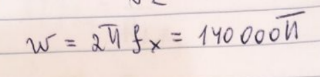 w = 2π fx = 140000π